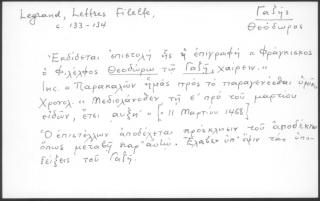 Legrand, Lettres Filelfe,
σ. 133-134
Γαζῆς
Θεόδωρος
Ἐκδίδεται ἐπιστολή ἧς ἡ ἐπιγραφή « Φραγκίσκος
ὁ Φιλέλφος Θεοδώρῳ τῷ Γαζῇ χαίρειν. »
Inc. « Παρακαλῶν ἡμᾶς πρός τό παραγενέσθαι
Χρονολ. « Μεδιολάνοθεν τῇ ε΄ πρό τοῦ μαρτίου
εἰδῶν, ἔτει αυξη΄ » [= 11 Μαρτίου 1468]
Ὁ ἐπιστέλλων ἀποδέχεται πρόσκλησιν τοῦ ἀποδέκτου
ὅπως μεταβῇ παρ' αὐτῷ. Ἔλαβεν ὑπ' ὄψιν τάς ὑπο-
δείξεις τοῦ Γαζῆ.